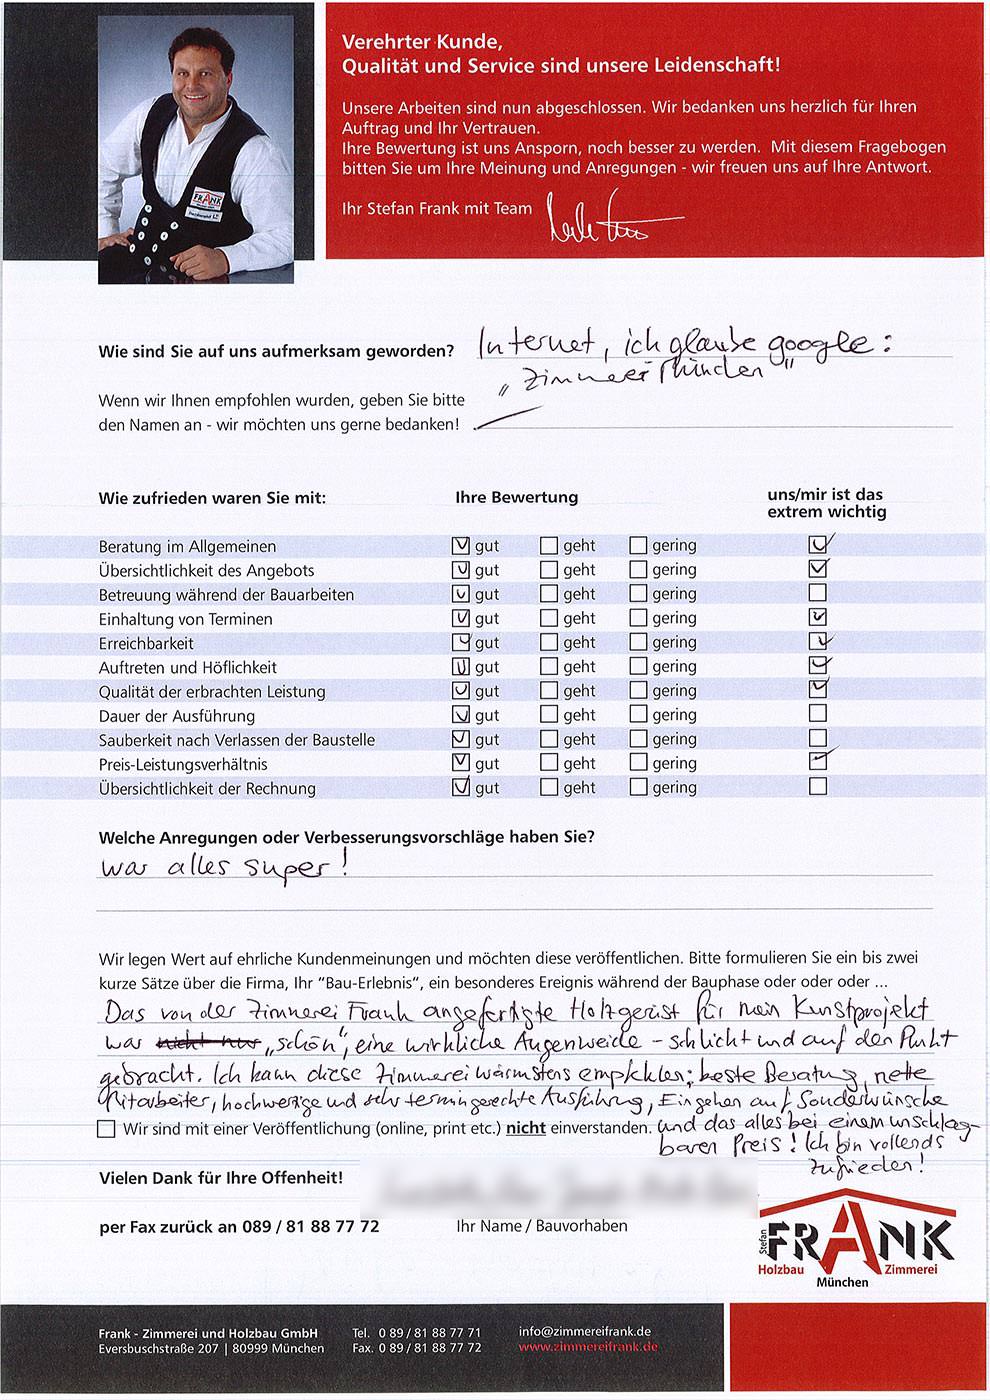 Verehrter Kunde,
Qualität und Service sind unsere Leidenschaft!
Unsere Arbeiten sind nun abgeschlossen. Wir bedanken uns herzlich für Ihren
Auftrag und Ihr Vertrauen.
Ihre Bewertung ist uns Ansporn, noch besser zu werden. Mit diesem Fragebogen
bitten Sie um Ihre Meinung und Anregungen - wir freuen uns auf Ihre Antwort.
Ihr Stefan Frank mit Team
FRANK
Wie sind Sie auf uns aufmerksam geworden? Internet, ich glaube google:
„Zimmerei München"
Wenn wir Ihnen empfohlen wurden, geben Sie bitte
den Namen an - wir möchten uns gerne bedanken!
Wie zufrieden waren Sie mit: Ihre Bewertung uns/mir ist das
extrem wichtig
Beratung im Allgemeinen gut geht gering
Übersichtlichkeit des Angebots gut geht gering
Betreuung während der Bauarbeiten gut geht gering
Einhaltung von Terminen gut geht gering
Erreichbarkeit gut geht gering
Auftreten und Höflichkeit gut geht gering
Qualität der erbrachten Leistung gut geht gering
Dauer der Ausführung gut geht gering
Sauberkeit nach Verlassen der Baustelle gut geht gering
Preis-Leistungsverhältnis gut geht gering
Übersichtlichkeit der Rechnung gut geht gering
Welche Anregungen oder Verbesserungsvorschläge haben Sie?
war alles super!
Wir legen Wert auf ehrliche Kundenmeinungen und möchten diese veröffentlichen. Bitte formulieren Sie ein bis zwei
kurze Sätze über die Firma, Ihr "Bau-Erlebnis", ein besonderes Ereignis während der Bauphase oder oder oder ...
Das von der Zimmerei Frank angefertigte Holzgerüst für mein Kunstprojekt
war nicht nur „schön", eine wirkliche Augenweide - schlicht und auf den Punkt
gebracht. Ich kann diese Zimmerei wärmstens empfehlen: beste Beratung, nette
Mitarbeiter, hochwertige und sehr termingerechte Ausführung, Eingehen auf Sonderwünsche
Wir sind mit einer Veröffentlichung (online, print etc.) nicht einverstanden. und das alles bei einem unschlag-
baren Preis! Ich bin vollends
zufrieden!
Vielen Dank für Ihre Offenheit!
per Fax zurück an 089 / 81 88 77 72 Ihr Name / Bauvorhaben
Stefan FRANK
Holzbau Zimmerei
München
Frank - Zimmerei und Holzbau GmbH Tel. 0 89 / 81 88 77 71 info@zimmereifrank.de
Eversbuschstraße 207 | 80999 München Fax. 0 89 / 81 88 77 72 www.zimmereifrank.de